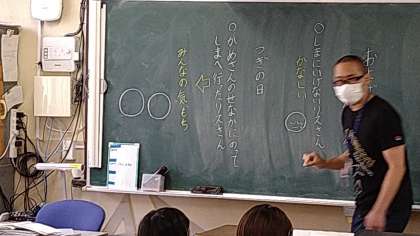 お
○しまにいけないりすさん
かなしい
つぎの日
○かめさんのせなかにのって
しまへ行ったりすさん
みんなの気もち